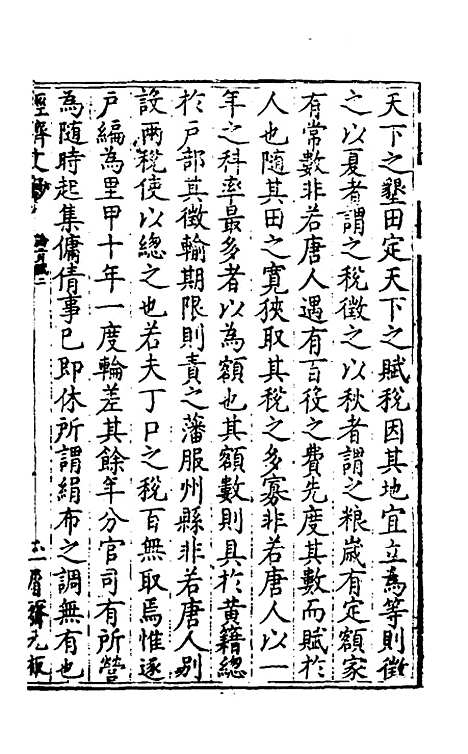 天下之墾田定天下之賦稅因其地宜立為等則徵
之以夏者謂之稅徵之以秋者謂之粮歲有定額家
有常數非若唐人遇有百役之費先度其數而賦於
人也随其田之寬狹取其稅之多寡非若唐人以一
年之科率最多者以為額也其額數則具於黃籍總
於戶部其徵輸期限則責之藩服州縣非若唐人別
設兩稅使以總之也若夫丁口之稅百無取焉惟逐
戶編為里甲十年一度輪差其餘年分官司有所營
為随時起集傭倩事已即休所謂絹布之調無有也
經濟文